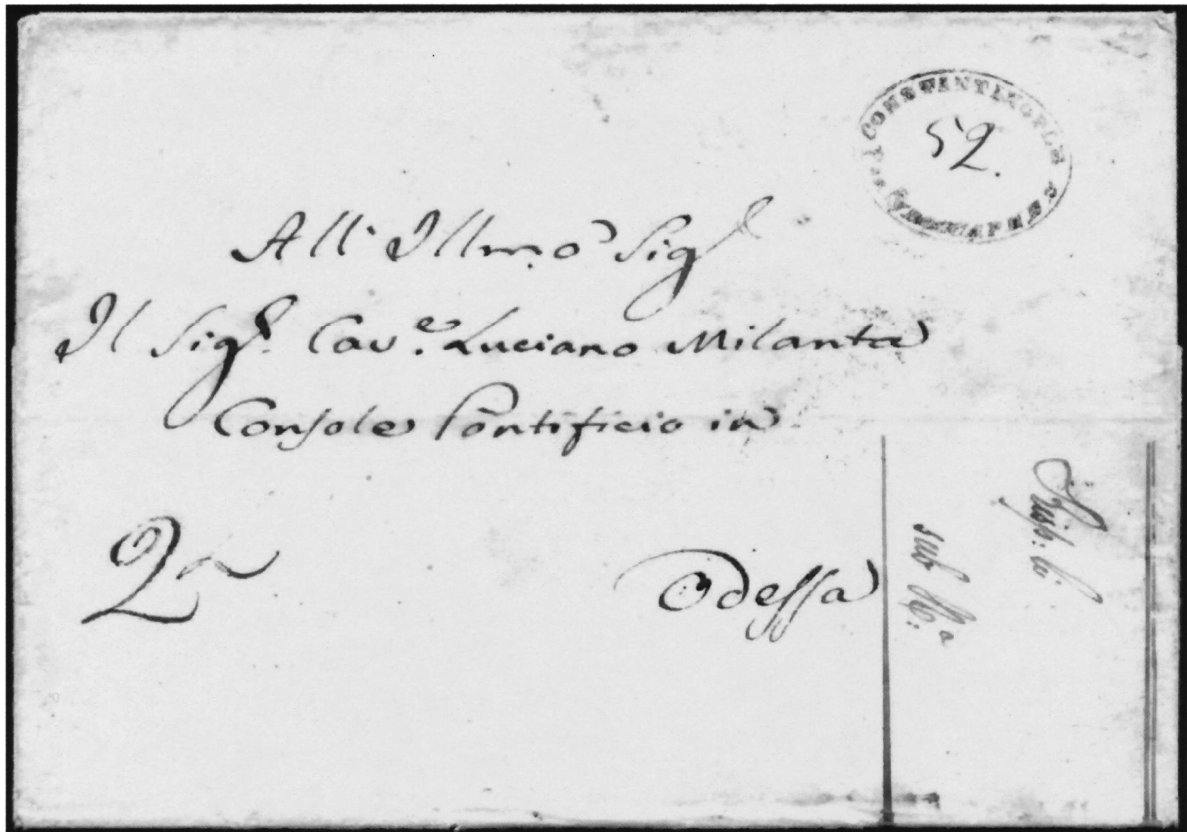 CONSTANTINOPLE
52.
All' Illmo Sigr
Il Sigr. Cave. Luciano Milanta
Console Pontificio in
2a
Odessa
sub